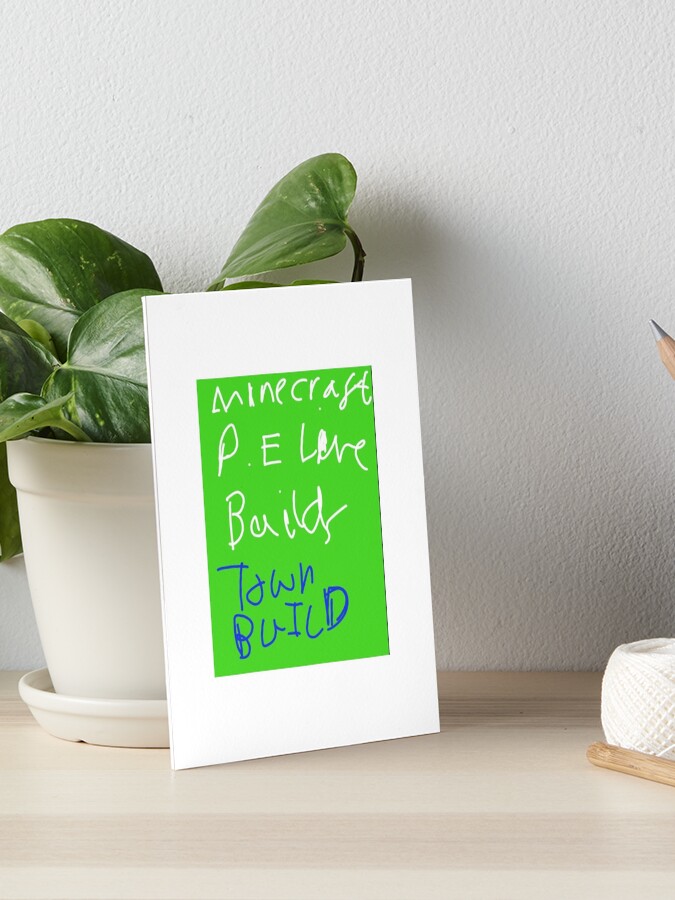 Minecraft
P.E Live
Builds
Town
BUILD